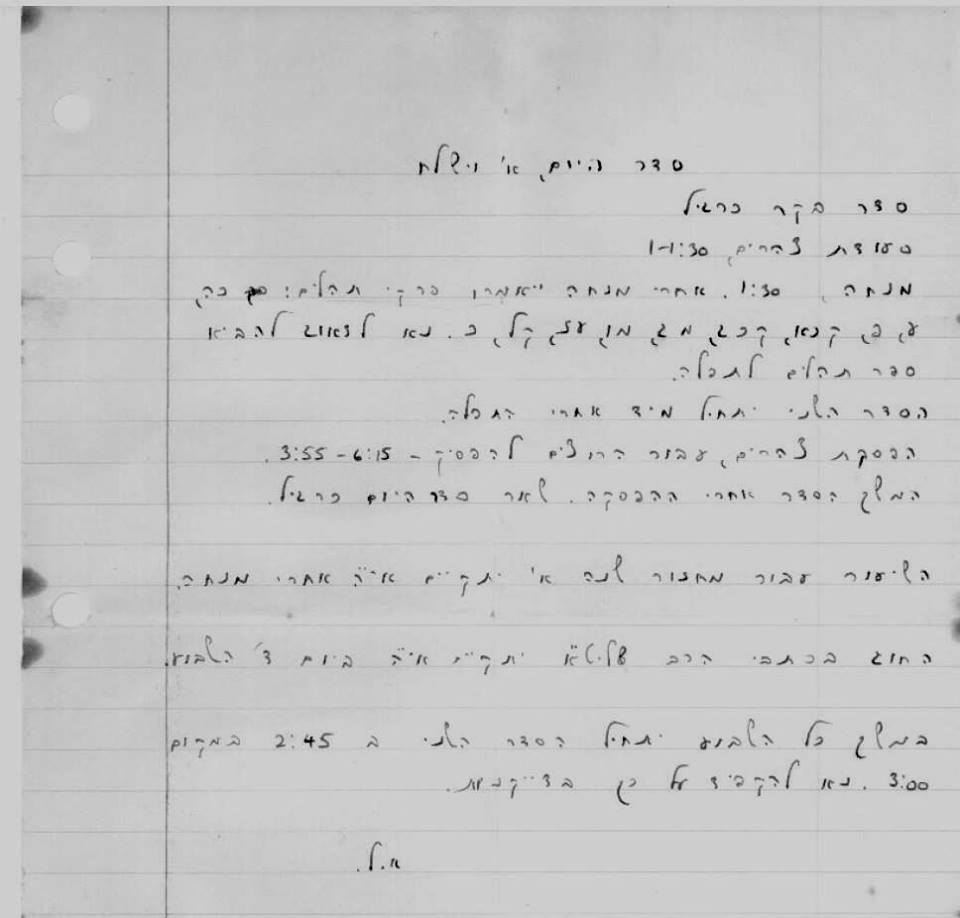 סדר היום, א' וישלח
סדר בקר כרגיל
סעודת צהרים, 1-1:30
מנחה, 1:30. אחרי מנחה ייאמרו פרקי תהלים: כה,
ע, פ, קכא, קכג, מג, מו, עז, קל, כ. נא לדאוג להביא
ספר תהלים לתפלה.
הסדר השני יתחיל מיד אחרי התפלה.
הפסקת צהרים, עבור הרוצים להפסיק - 3:55-6:15.
המשך הסדר אחרי ההפסקה. שאר סדר היום כרגיל.
השיעור עבור מחזור שנה א' יתקיים אי"ה אחרי מנחה.
החוג בכתבי הרב שליט"א יתקיים אי"ה ביום ד' השבוע.
במשך כל השבוע יתחיל הסדר השני ב 2:45 במקום
3:00. נא להקפיד על כך בדייקנות.
א.ל.